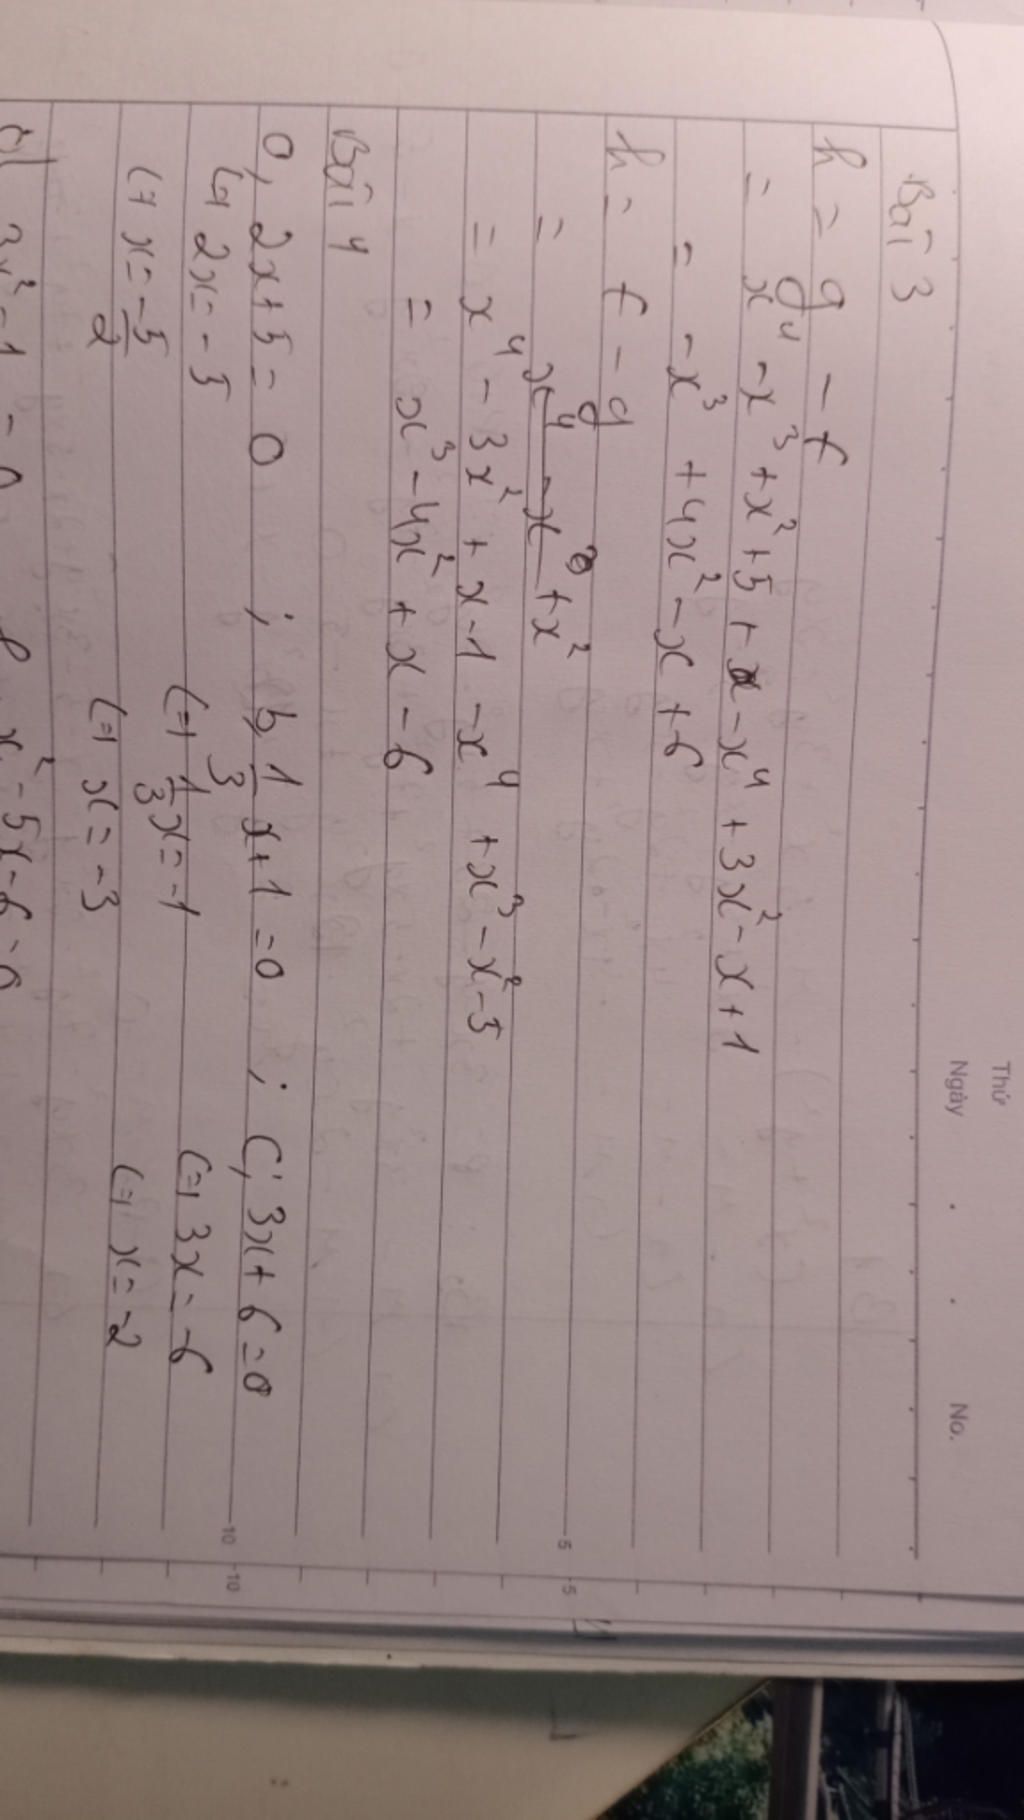 Thứ
Ngày . . No.
Bài 3
h = g - f
= x⁴ - x³ + x² + 5 + x - x⁴ + 3x² - x + 1
= - x³ + 4x² - x + 6
h = f - g
= x⁴ - x³ + x²
= x⁴ - 3x² + x - 1 - x⁴ + x³ - x² - 5
= x³ - 4x² + x - 6
Bài 4
a, 2x + 5 = 0 ; b, 1/3 x + 1 = 0 ; c, 3x + 6 = 0
(=) 2x = -5 (=) 1/3 x = -1 (=) 3x = -6
(=) x = -5/2 (=) x = -3 (=) x = -2
3x² - 1 = 0 x² - 5x - 6 = 0
5
5
10
10